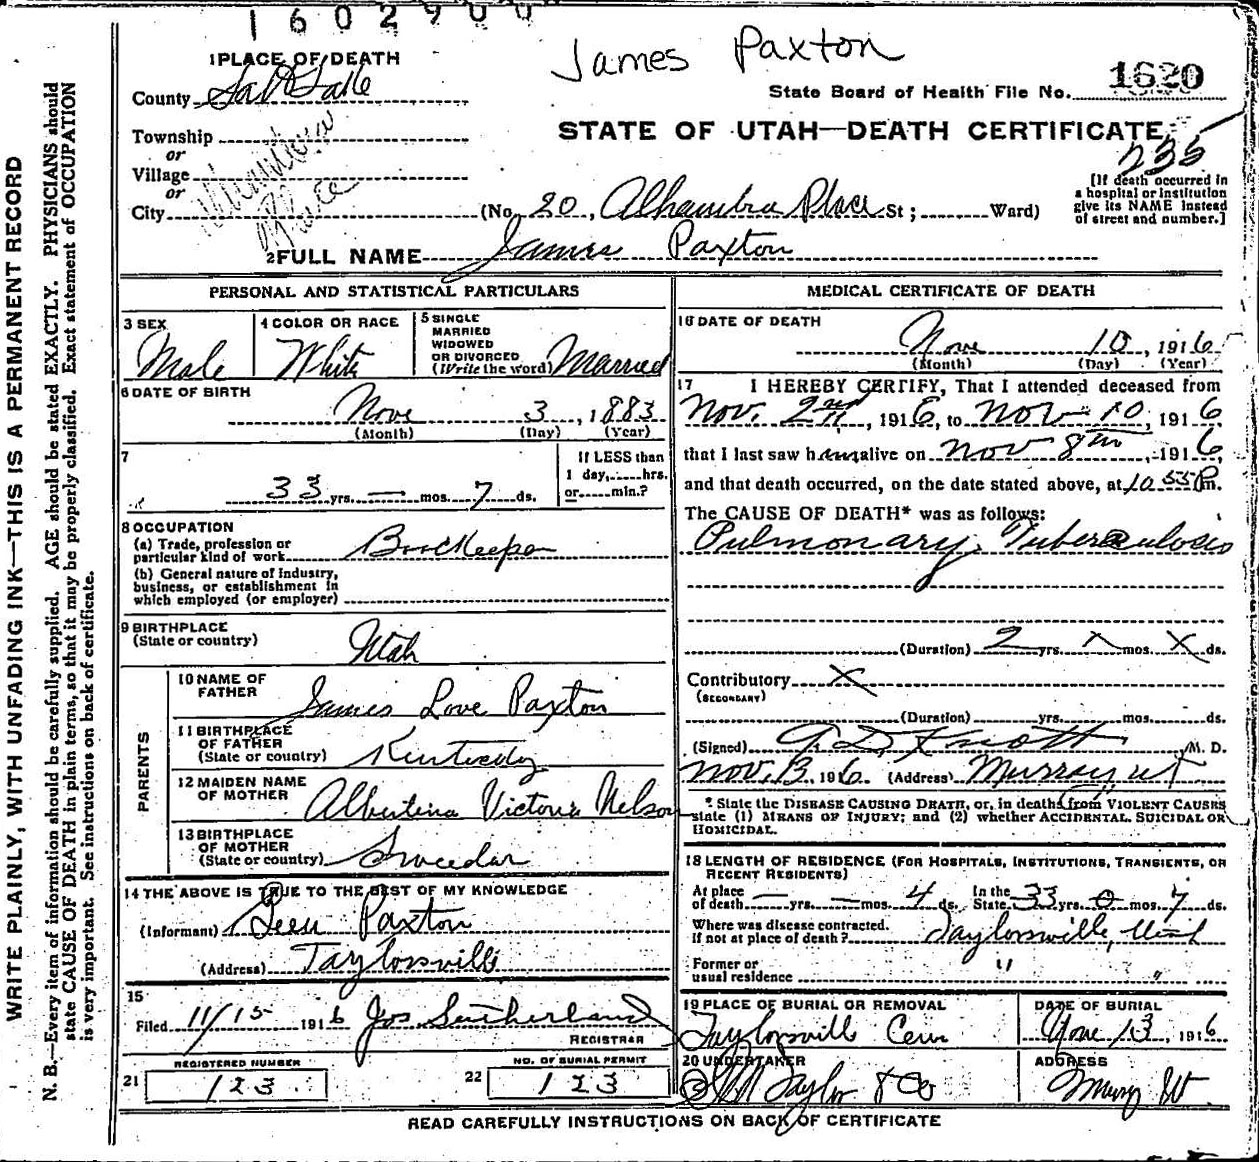 1602900
James Paxton
1620
State Board of Health File No.
STATE OF UTAH—DEATH CERTIFICATE
235
[If death occurred in
a hospital or institution
give its NAME instead
of street and number.]
1 PLACE OF DEATH
County Salt Lake
Township
or
Village
or
City (No. 20, Alhambra Place St; Ward)
Place
2 FULL NAME James Paxton
PERSONAL AND STATISTICAL PARTICULARS
3 SEX Male
4 COLOR OR RACE White
5 SINGLE
MARRIED
WIDOWED
OR DIVORCED
(Write the word) Married
6 DATE OF BIRTH
Nove 3, 1883
(Month) (Day) (Year)
7
33 yrs. — mos. 7 ds.
If LESS than
1 day, hrs.
or min.?
8 OCCUPATION
(a) Trade, profession or
particular kind of work Bookkeeper
(b) General nature of industry,
business, or establishment in
which employed (or employer)
9 BIRTHPLACE
(State or country) Utah
PARENTS
10 NAME OF
FATHER James Love Paxton
11 BIRTHPLACE
OF FATHER
(State or country) Kentucky
12 MAIDEN NAME
OF MOTHER Albertina Victoria Nelson
13 BIRTHPLACE
OF MOTHER
(State or country)
14 THE ABOVE IS TRUE TO THE BEST OF MY KNOWLEDGE
(Informant) Paxton
(Address) Taylorsville
15
Filed 11/15 1916 Jos Sutherland
REGISTRAR
REGISTERED NUMBER
21 123
NO. OF BURIAL PERMIT
22 123
MEDICAL CERTIFICATE OF DEATH
16 DATE OF DEATH
Nove 10, 1916
(Month) (Day) (Year)
17 I HEREBY CERTIFY, That I attended deceased from
Nov. 2nd, 1916, to Nov 10, 1916
that I last saw him alive on Nov 8th, 1916,
and that death occurred, on the date stated above, at 10 55 Pm.
The CAUSE OF DEATH* was as follows:
Pulmonary Tuberculosis
(Duration) 2 yrs. x mos. x ds.
Contributory x
(SECONDARY)
(Duration) yrs. mos. ds.
(Signed) Knott M. D.
Nov. 13, 1916. (Address) Murray Ut
* State the DISEASE CAUSING DEATH, or, in deaths from VIOLENT CAUSES
state (1) MEANS OF INJURY; and (2) whether ACCIDENTAL, SUICIDAL OR
HOMICIDAL.
18 LENGTH OF RESIDENCE (FOR HOSPITALS, INSTITUTIONS, TRANSIENTS, OR
RECENT RESIDENTS)
At place
of death — yrs. — mos. 4 ds. In the
State 33 yrs. 0 mos. 7 ds.
Where was disease contracted.
if not at place of death? Taylorsville, Utah
Former or
usual residence " "
19 PLACE OF BURIAL OR REMOVAL
Taylorsville Cem
DATE OF BURIAL
Nove 13, 1916
20 UNDERTAKER
Taylor & Co
ADDRESS
Murry Ut
READ CAREFULLY INSTRUCTIONS ON BACK OF CERTIFICATE
WRITE PLAINLY, WITH UNFADING INK—THIS IS A PERMANENT RECORD
N. B.—Every item of information should be carefully supplied. AGE should be stated EXACTLY. PHYSICIANS should
state CAUSE OF DEATH in plain terms, so that it may be properly classified. Exact statement of OCCUPATION
is very important. See instructions on back of certificate.